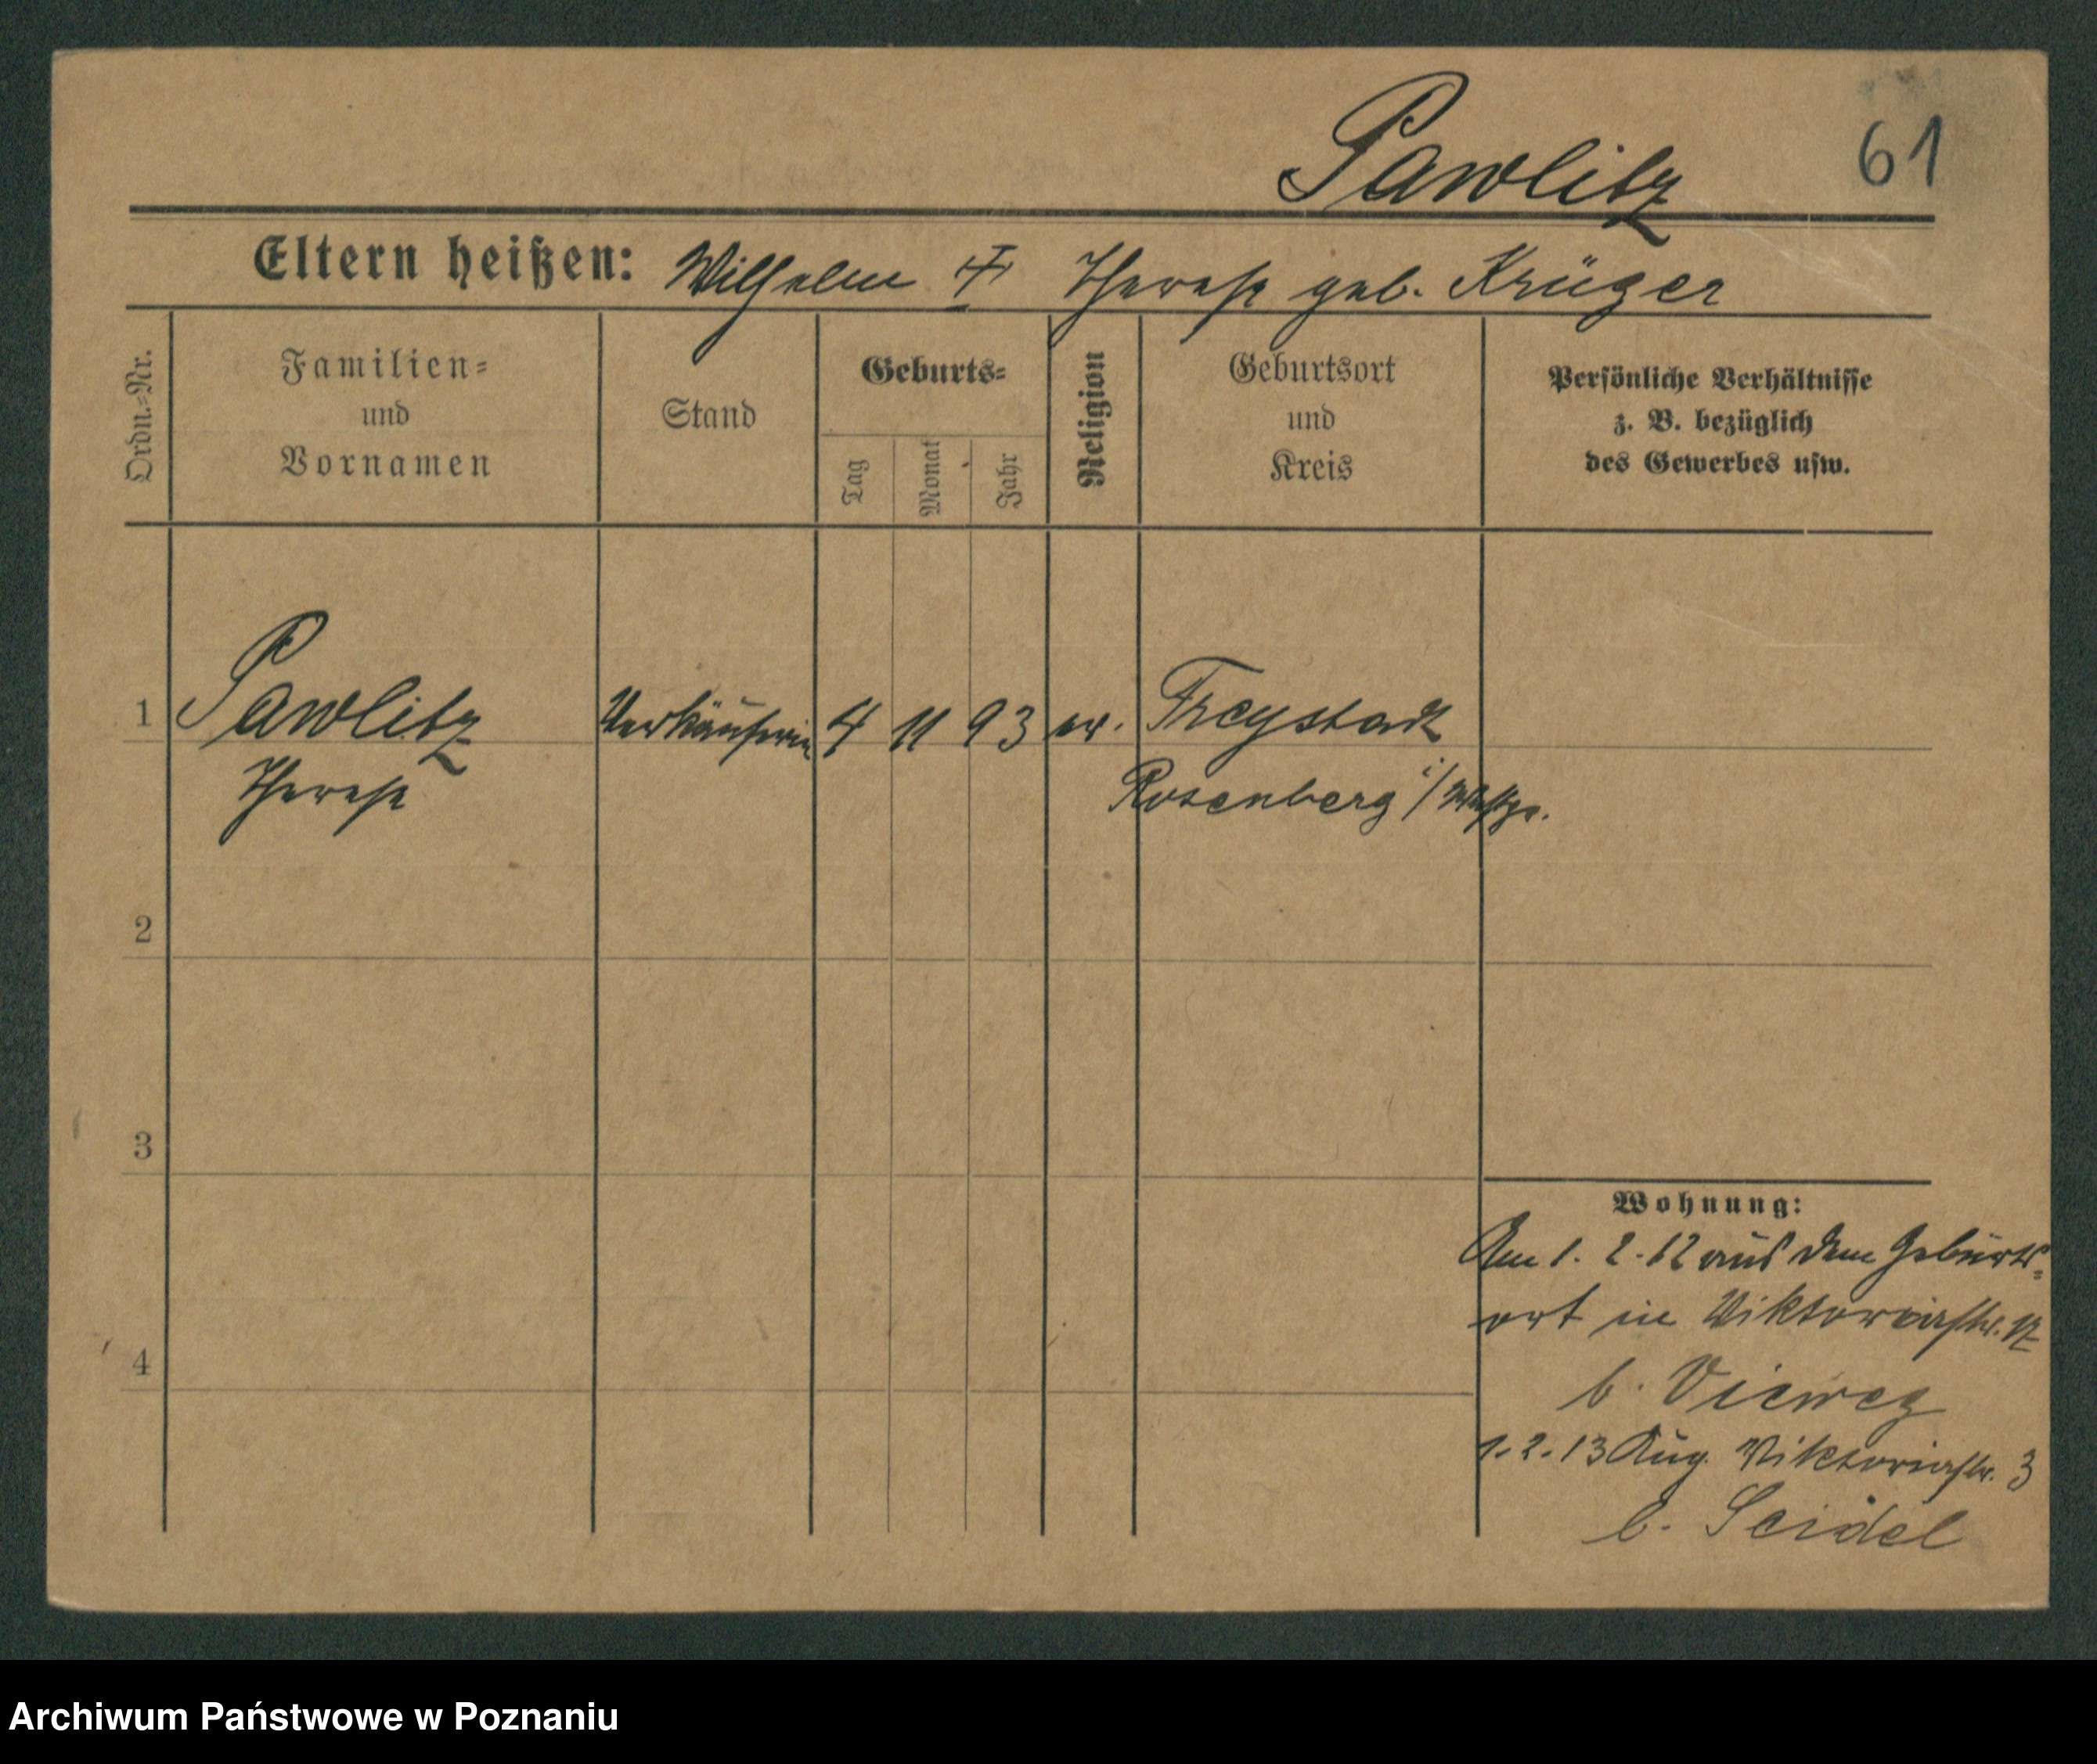 Pawlitz 61
Eltern heißen: Wilhelm † Therese geb. Krüger
Ordn.=Nr.
Familien=
und
Vornamen
Stand
Geburts=
Tag
Monat
Jahr
Religion
Geburtsort
und
Kreis
Persönliche Verhältnisse
z. B. bezüglich
des Gewerbes usw.
1 Pawlitz Verkäuferin 4 11 93 ev. Freystadt
Therese Rosenberg i/Westpr.
2
3
4
Wohnung:
Am 1. 2. 12 aus dem Geburts=
ort in Viktoriastr.
b. Vieweg
1. 2. 13 Aug. Viktoriastr. 3
b. Seidel
Archiwum Państwowe w Poznaniu